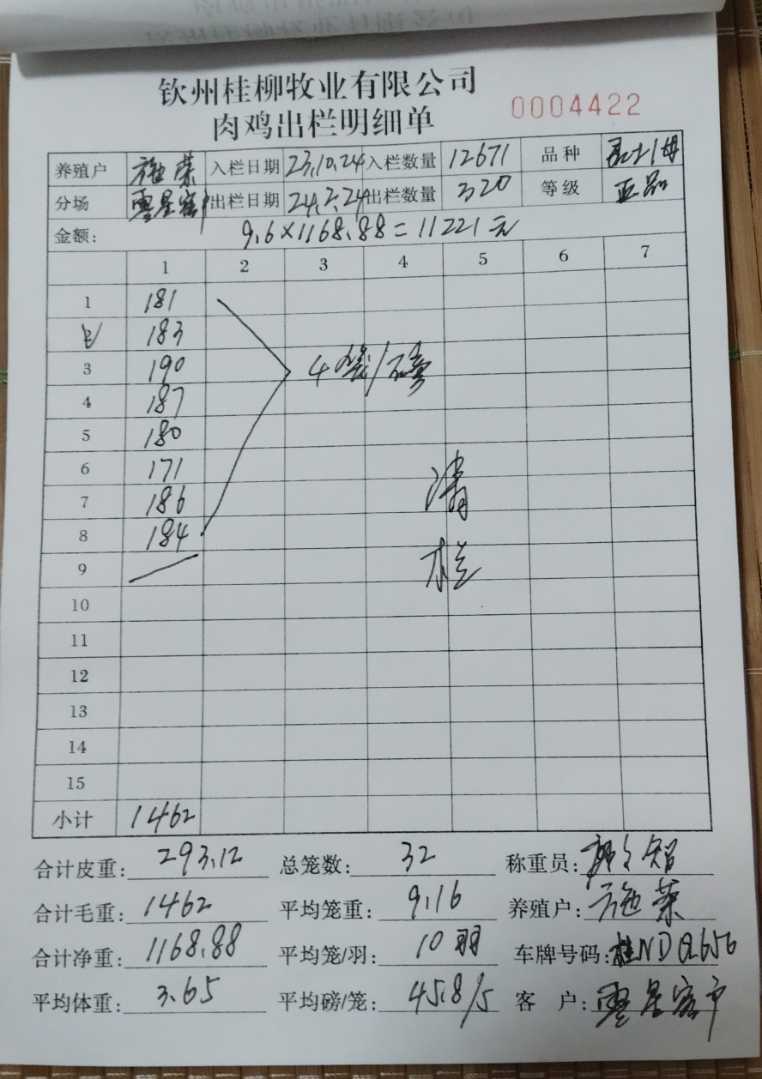 钦州桂柳牧业有限公司
肉鸡出栏明细单 0004422
养殖户 施荣 入栏日期 23.10.24 入栏数量 12671 品种
分场 零星客户 出栏日期 24.2.24 出栏数量 320 等级 正品
金额: 9.6×1168.88=11221元
1 2 3 4 5 6 7
1 181
2 183
3 190 4笼/磅
4 187
5 180
6 171
7 186 清
8 184
9 栏
10
11
12
13
14
15
小计 1462
合计皮重: 293.12 总笼数: 32 称重员:
合计毛重: 1462 平均笼重: 9.16 养殖户: 施荣
合计净重: 1168.88 平均笼/羽: 10羽 车牌号码: 桂NDQ656
平均体重: 3.65 平均磅/笼: 45.8/5 客 户: 零星客户